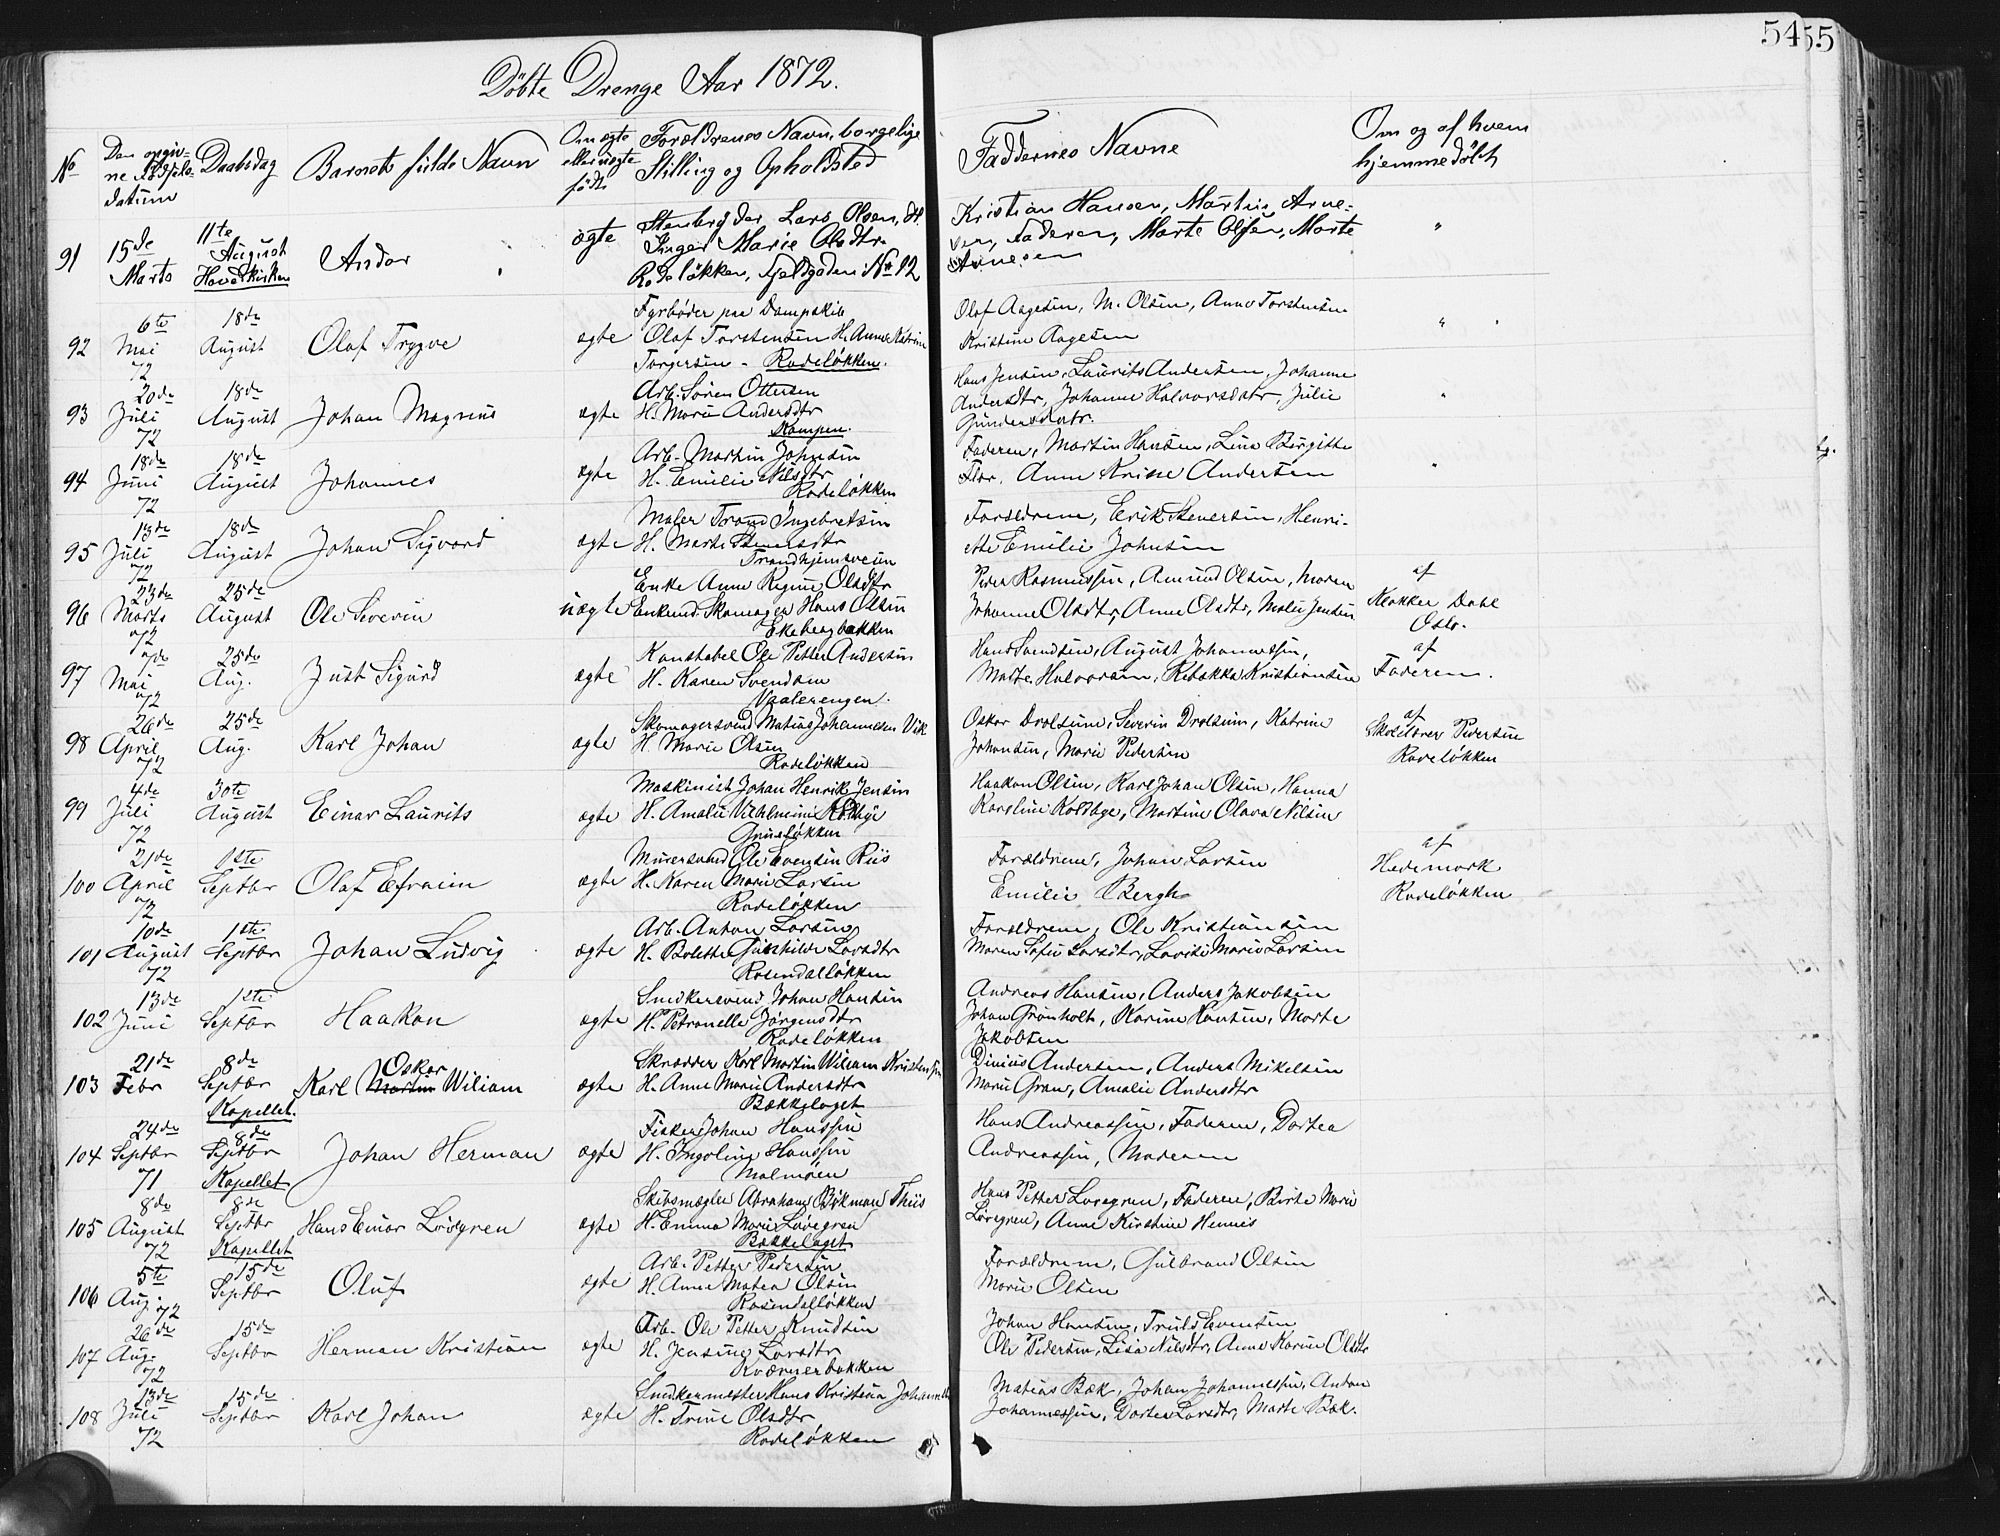 54
55
Döbte Drenge Aar 1872.
No
Den opgivne Fødselsdatum
Daabsdag
Barnets fulde Navn
Om ægte eller uægte født
Forældrenes Navn, borgelige Stilling og Opholdsted
Faddernes Navne
Om og af hvem hjemmedøbt
91 15de Marts 11te August Hovedkirken Andor ægte Lars Olsen, H. Inger Marie Olsdtr. Rodeløkken, No 12
Kristian Hansen, Martin Arnesen, Faderen, Marte Olsen, Marte Arnesen "
92 6te Mai 72 18de August Olaf Trygve ægte Fyrbøder paa Dampskib Olaf Torstensen H. Anne Katrine Torgersen - Rodeløkken.
Olaf Aagesen, M. Olsen, Anne Torstensen Kristine Aagesen "
93 20de Juli 72 18de August Johan Magnus ægte Arb. Søren Ottersen H. Marie Andersdtr Kampen.
Hans Jensen, Laurits Andersen, Johanne Andersdtr, Johanne Halvorsdatr, Julie Gundersdatr. "
94 18de Juni 72 18de August Johannes ægte Arb. Martin Johnsen H. Emilie Nilsdtr Rodeløkken
Faderen, Martin Hansen, Lina Birgitte Flor, Anne Krine Andersen "
95 13de Juli 72 18de August Johan Sigvard ægte Maler Trond Ingebretsen H. Marte Stenersdtr Trondhjemsveien
Forældrene, Erik Stenersen, Henriette Emilie Johnsen
96 23de Marts 72 25de August Ole Severin uægte Enke Anne Regine Olsdtr Enkemd. Skomager Hans Olsen Ekebergbakken
Peder Rasmussen, Amund Olsen, Maren Johanne Olsdtr, Anne Olsdtr, Malie Jensen
af Klokker Dahl Oslo.
97 7de Mai 72 25de Aug. Just Sigurd ægte Konstabel Ole Petter Andersen H. Karen Svendsen Vaalerengen.
Hans Svendsen, August Johannessen, Marte Halvorsen, Rebekka Kristiansen
af Faderen.
98 26de April 72 25de Aug. Karl Johan ægte Skomagersvend Matias Johannesen Vik H. Marie Olsen Rodeløkken
Oskar Drolsum, Severin Drolsum, Katrine Johansen, Marie Pedersen
af Skolelærer Pedersen Rodeløkken
99 4de Juli 72 30te August Einar Laurits ægte Maskinist Johan Henrik Jensen H. Amalie Vilhelmine Koldbye Grüneløkken
Haakon Olsen, Karl Johan Olsen, Hanna Karoline Koldbye, Martine Olava Nilsen
100 21de April 72 1ste Septbr Olaf Efraim ægte Murersvend Ole Evensen Riis H. Karen Marie Larsen Rodeløkken
Forældrene, Johan Larsen Emilie Bergh
af Hedemark Rodeløkken
101 10de August 72 1ste Septbr Johan Ludvig ægte Arb. Anton Larsen H. Bolette Gunhilde Larsdtr Rosendalløkken
Forældrene, Ole Kristiansen Maren Sofie Larsdtr, Lovise Marie Larsen
102 13de Juni 1ste Septbr Haakon ægte Snedkersvend Johan Hansen H. Petronelle Jørgensdtr Rodeløkken
Andreas Hansen, Anders Jakobsen Johan Grønholt, Karine Hansen, Marte Jakobsen
103 21de Febr 8de Septbr Kapellet. Karl Martin Oskar Wiliam ægte Skrædder Karl Martin Wiliam Kristensen H. Anne Marie Andersdtr Bækkelaget
Dinius Andersen, Anders Mikelsen Marie Gran, Amalie Andersdtr
104 24de Septbr 71 8de Septbr Kapellet Johan Herman ægte Fisker Johan Hanssen H. Ingoline Hanssen Malmøen
Hans Andreassen, Faderen, Dortea Andreassen, Moderen
105 8de August 72 8de Septbr Kapellet Hans Einar Lövgren ægte Skibsmægler Abraham Bökman Thiis H. Emma Marie Lövegren Bækkelaget
Hans Petter Lövegren, Faderen, Birte Marie Lövegren, Anne Kirstine Hennes
106 5te Aug. 72 15de Septbr Oluf ægte Arb. Petter Pedersen H. Anne Matea Olsen Rosendalløkken
Forældrene, Gulbrand Olsen Marie Olsen
107 26de Aug. 72 15de Septbr Herman Kristian ægte Arb. Ole Petter Knudsen H. Jensine Larsdtr Kværnerbakken
Johan Hansen, Truls Evensen Ole Pedersen, Lisa Nilsdtr, Anne Karine Olsdtr
108 13de Juli 72 15de Septbr Karl Johan ægte Snedkermester Hans Kristian H. Trine Olsdtr Rodeløkken
Matias Bæk, Johan Johannessen, Anton Johannessen, Dortea Larsdtr, Marte Bæk.